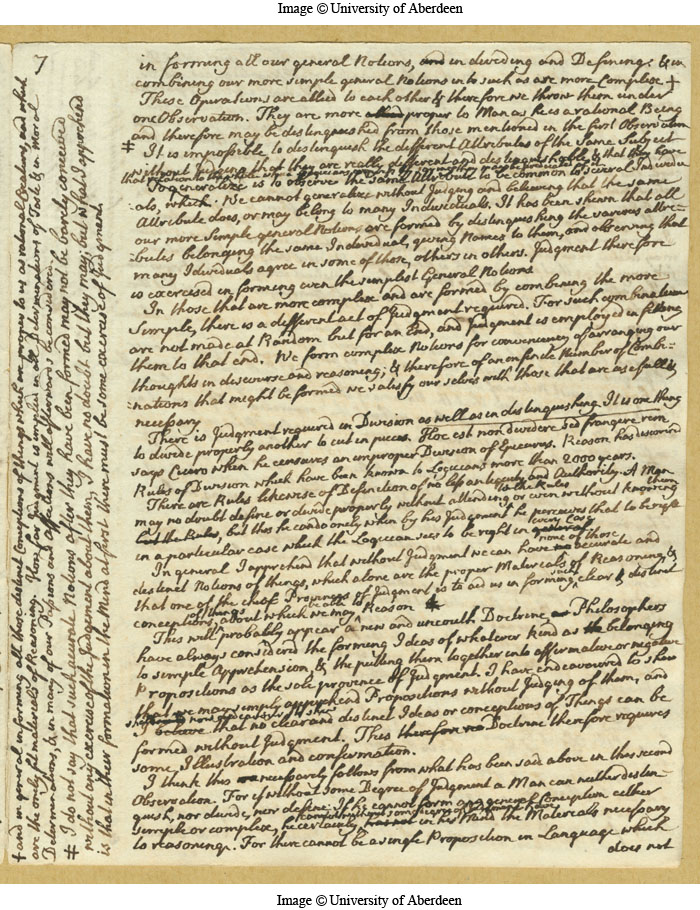 Image © University of Aberdeen
7
in forming all our general Notions, and in dividing and Defining; & in
combining our more simple general Notions into such as are more Complex +
These Operations are allied to each other & therefore we throw them under
one Observation. They are more proper to Man as he is a rational Being
and therefore may be distinguished from those mentioned in the first Observation
‡ It is impossible to distinguish the different Attributes of the Same Subject
without judging that they are really different and distinguishable & that they have
To generalize is to observe the same Attribute to be common to several Individu
als, which. We cannot generalize without Judging and believing that the same
Attribute does, or may belong to many Individuals. It has been shewn that all
our more Simple general Notions are formed by distinguishing the various attri-
butes belonging the same Individual, giving Names to them, and observing that
many Idividuals agree in some of those, others in others. Judgment therefore
is exercised in forming even the simplest General Notions
In those that are more complex and are formed by combining the more
Simple, there is a different act of Judgment required. For such combinations
are not made at Random but for an End, and Judgment is employed in fitting
them to that end. We form complex Notions for conveniency of arranging our
thoughts in discourse and reasoning; & therefore of an infinite Number of Combi-
nations that might be formed we satisfy our selves with those that are usefull &
necessary
There is Judgment required in Division as well as in distinguishing. It is one thing
to divide properly another to cut in pieces. Hoc est non dividere sed frangere rem
says Cicero when he censures an improper Division of Epicurus. Reason has discovered
Rules of Division which have been known to Logicians more than 2000 years.
There are Rules likewise of Definition of no less antiquity and Authority. A Man
may no doubt define or divide properly without attending to the Rules or even without knowing them
but this he can do only when by his Judgment he perceives that to be right
in a particular case which the Logician sees to be right in every case
In general I apprehend that without Judgment we can have none of those accurate and
distinct Notions of things, which alone are the proper Materials of Reasoning, &
that one of the chief Provinces of Judgment is to aid us in forming such clear & distinct
conceptions of things about which we may be able to Reason ‡
This will probably appear a new and uncouth Doctrine Philosophers
have always considered the forming Ideas of whatever kind as belonging
to simple Apprehension, & the putting them together into affirmative or negative
Propositions as the sole province of Judgment. I have endeavoured to shew
that we may simply apprehend Propositions without Judging of them, and
believe that no clear and distinct Ideas or conceptions of Things can be
formed without Judgment. This Doctrine therefore requires
some Illustration and confirmation.
I think this necessarly follows from what has been said above in this second
Observation. For if without some Degree of Judgment a Man can neither distin-
guish, nor divide, nor define: If he cannot form any general Conception either
simple or complex, he certainly in his Mind the Materials necessary
to reasoning. For there cannot be a single Proposition in Language which
does not
+ and in general in forming all those distinct Conceptions of things which are proper to us as rational Creatures, and which
are the only fit materials of Reasoning. How far Judgment is implied in all Determinations of Taste & in Moral
Determinations, & in many of our Passions and affections will afterwards be considered
‡ I do not say that such accurate Notions after they have been formed may not be barely conceived
without any exercise of the Judgement about them; I have no doubt but they may; but what I apprehend
is that in their formation in the Mind at first there must be some exercise of Judgment
Image © University of Aberdeen